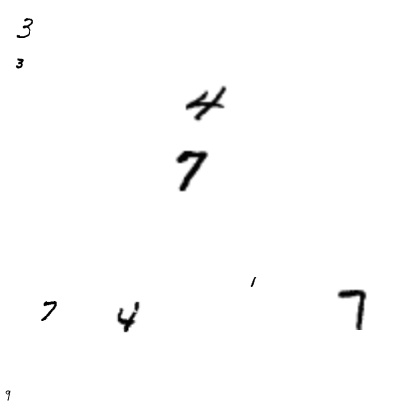 3
3
4
7
1
7 4 7
9